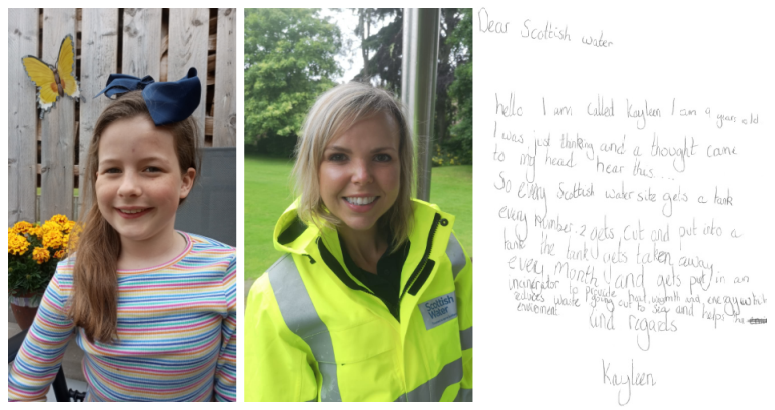 Scottish
Water
Dear Scottish water
hello I am called Kayleen I am 9 years old
I was just thinking and a thought came
to my head hear this...
So every Scottish water site gets a tank
every number.2 gets cut and put into a
tank the tank gets taken away
every month and gets put in an
incinerator to provide heat, warmth and energy which
reduces waste going out to sea and helps the
enviroment
and regards
Kayleen